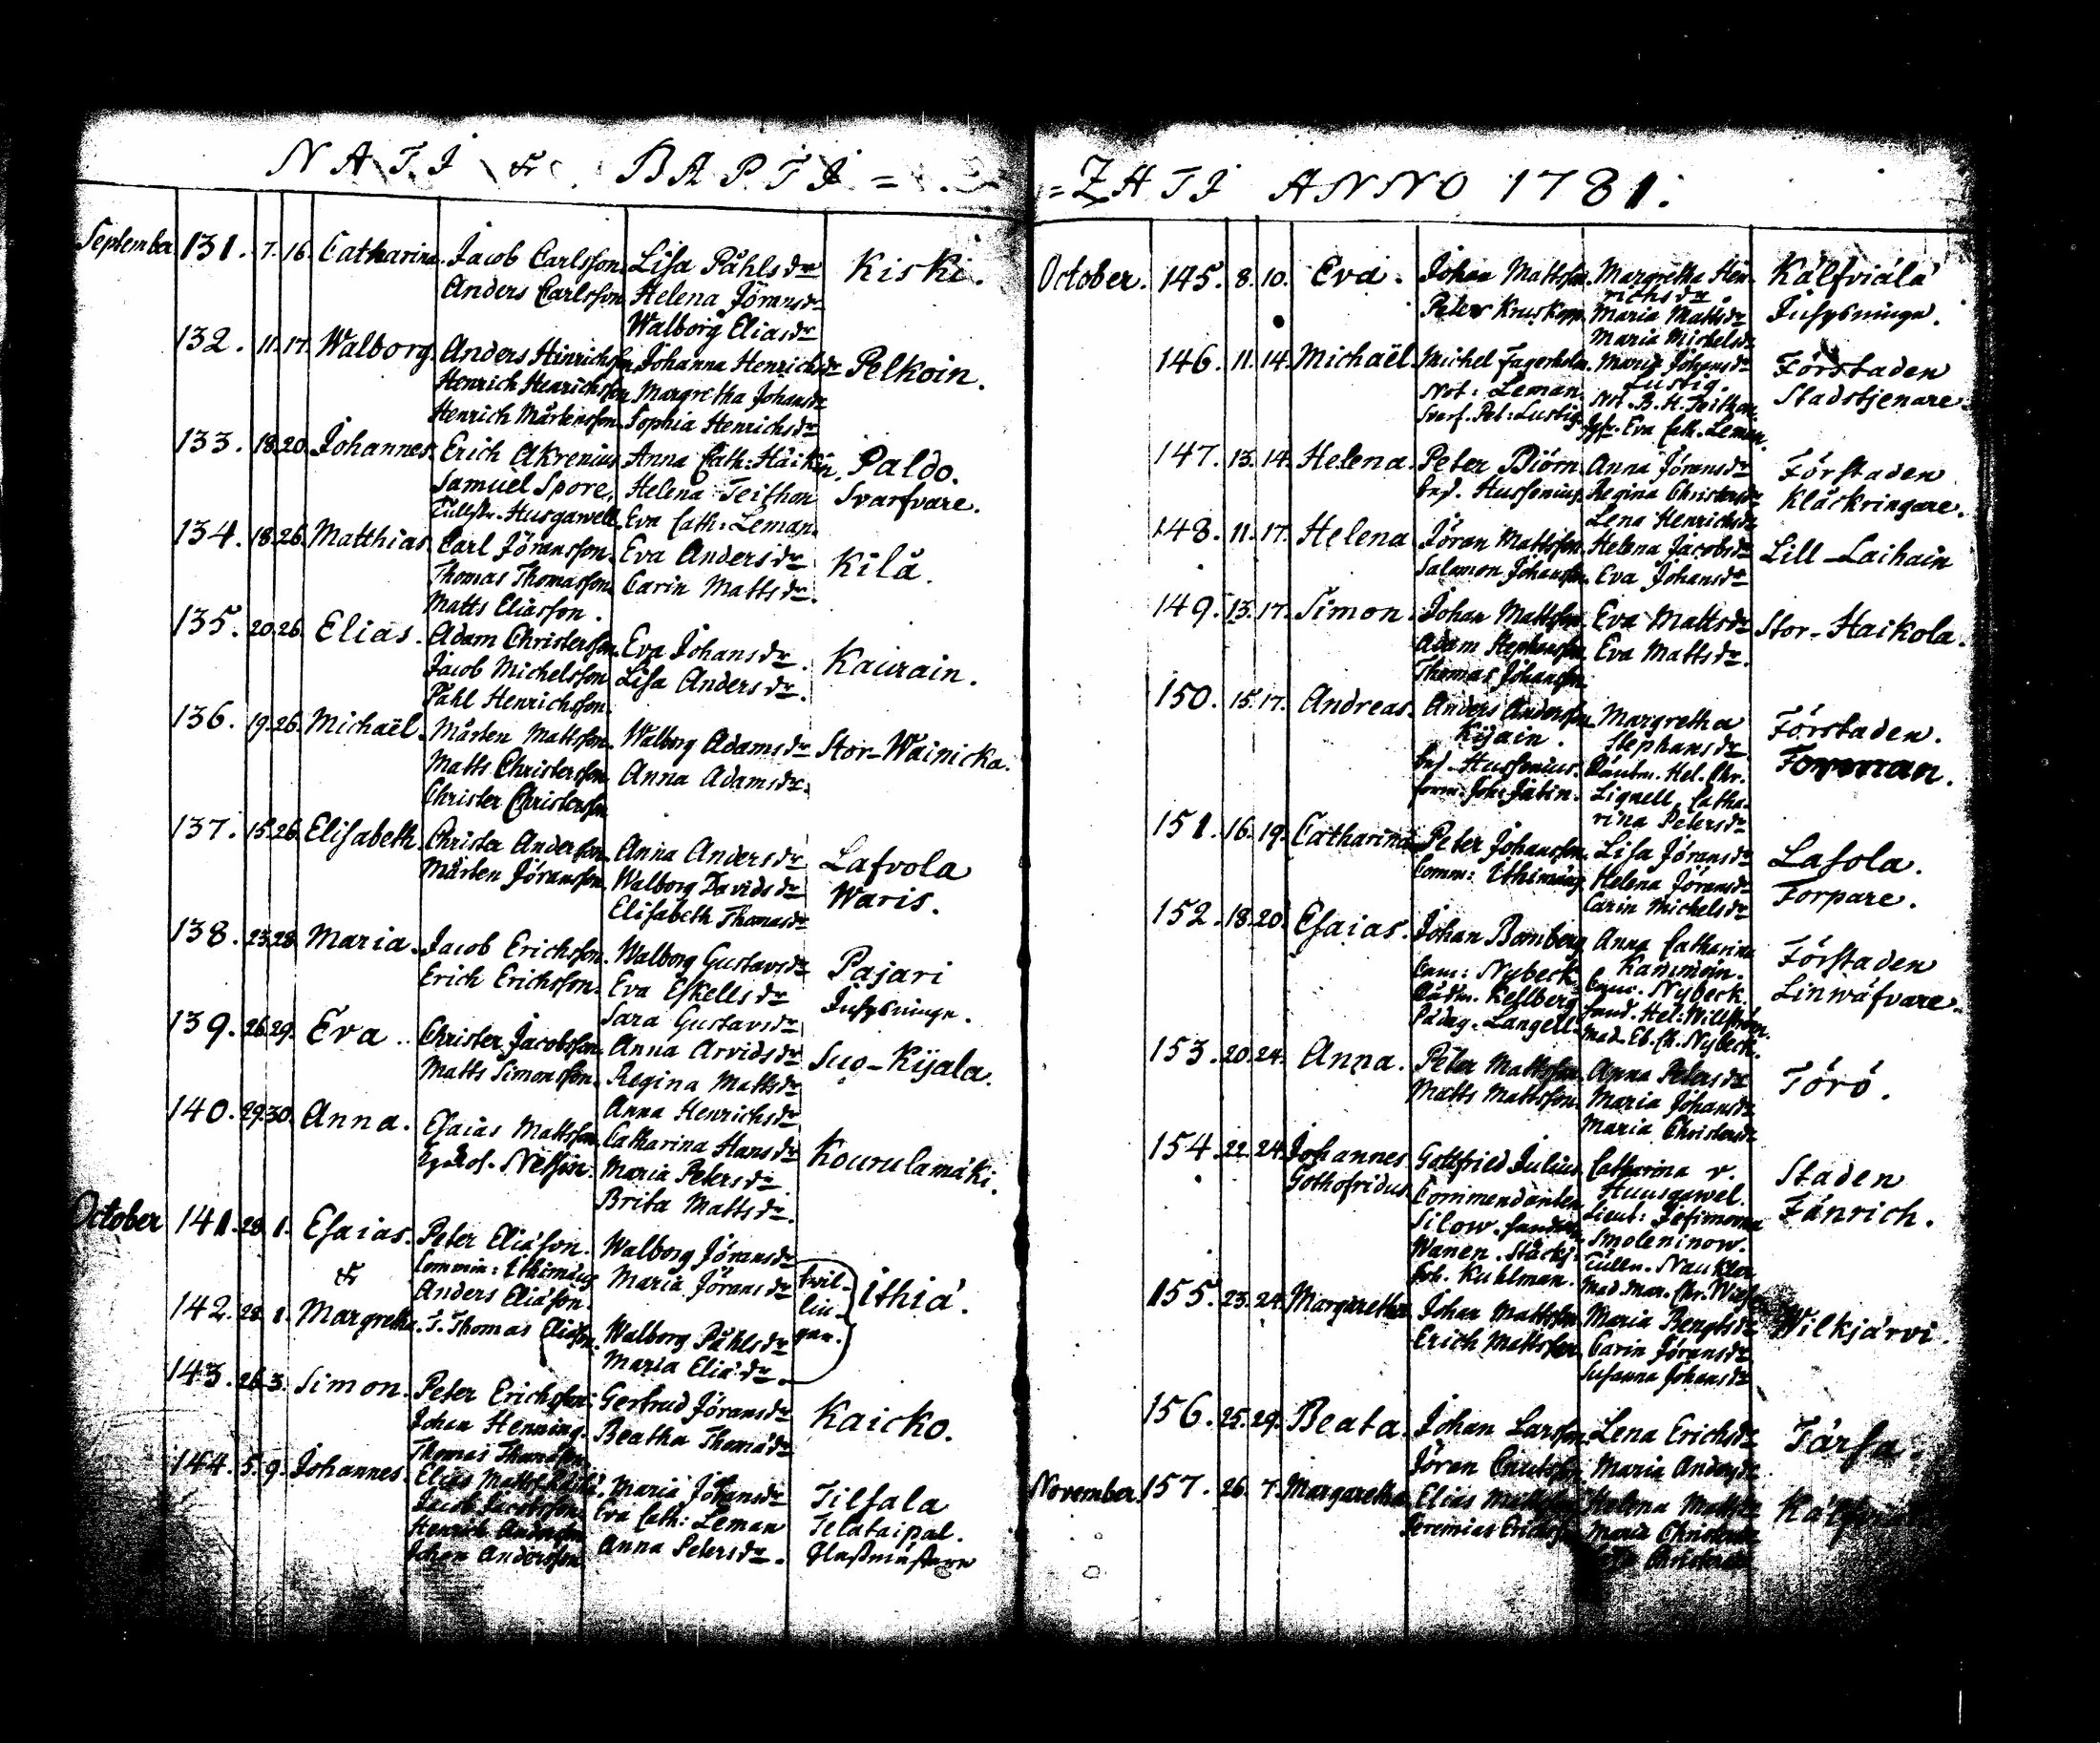 NATI & BAPTI =
September 131. 7. 16. Catharina. Jacob Carlsson. Lisa Påhlsdr Kiski.
Anders Carlsson Helena Jöransdr
Walborg Eliasdr
132. 11. 17. Walborg. Anders Hinrichsson Johanna Henrichsdr Pelkoin.
Henrich Henrichsson Margretha Johansdr
Henrich Mårtensson. Sophia Henrichsdr
133. 18. 20. Johannes. Erich Akrenius Anna Cath: Häikin. Paldo.
Samuel Spore. Helena Teithon Svarfvare.
Husgawell. Eva Cath: Leman.
134. 18. 26. Matthias. Carl Jöransson. Eva Andersdr Kilå.
Thomas Thomasson. Carin Mattsdr.
Matts Eliasson.
135. 20. 26. Elias. Adam Christersson. Eva Johansdr. Kaurain.
Jacob Michelsson Lisa Andersdr.
Påhl Henrichsson.
136. 19. 26. Michaël. Mårten Mattsson. Walborg Adamsdr Stor-Wainicka.
Matts Christersson. Anna Adamsdr.
Christer Christersson
137. 15. 26. Elisabeth. Christer Andersson. Anna Andersdr Lafvola
Mårten Jöransson. Walborg Davidsdr Waris.
Elisabeth Thomasdr
138. 23. 28. Maria. Jacob Erichsson. Walborg Gustavsdr Pajari
Erich Erichsson. Eva Eskellsdr Inhysninge.
Sara Gustavsdr
139. 26. 29. Eva.. Christer Jacobsson. Anna Arvidsdr Suo-Kijala.
Matts Simonsson. Regina Mattsdr
Anna Henrichsdr
140. 29. 30. Anna. Esaias Mattsson. Catharina Hansdr Kourulamäki.
Nessin. Maria Petersdr
Brita Mattsdr.
October 141. 28. 1. Esaias. Peter Eliäson. Walborg Jöransdr
& Commin: Ithimäus Maria Jöransdr twil- Ithiä.
Anders Eliäson. lin-
142. 28. 1. Margretha. T. Thomas Eliäson. Walborg Påhlsdr gar.
Maria Eliädr.
143. 26. 3. Simon. Peter Erichsson. Gertrud Jöransdr Kaicko.
Johan Henning. Beatha Thomädr
Thomas
144. 5. 9. Johannes. Elias Matts Maria Johansdr Tilsala
Jacob Jacobsson. Eva Cath: Leman Telataipal.
Henrich Andersson Anna Petersdr. Glasmästare
Johan Andersson
=ZATI ANNO 1781.
October. 145. 8. 10. Eva. Johan Mattsson. Margretha Hen- Kälfviälä
richsdr. Inhysninge.
Peter Kruskopp. Maria Mattsdr
Maria Michelsdr
146. 11. 14. Michaël. Michel Fagerholm. Maria Johansdr Förstaden
Lustig. Stadstjenare.
Not: Leman. Not. B. H. Teithon
Svarf. Pet: Lustig. Jgfr. Eva Cath. Leman.
147. 13. 14. Helena. Peter Biörn Anna Jöransdr Förstaden
Hussenius. Regina Christersdr Kläckringare.
Lena Henrichsdr
148. 11. 17. Helena Jöran Mattsson. Helena Jacobsdr Lill-Laihain
Salomon Johansson. Eva Johansdr
149. 13. 17. Simon. Johan Mattsson. Eva Mattsdr Stor-Haikola.
Adam Stephansson Eva Mattsdr.
Thomas Johansson
150. 15. 17. Andreas. Anders Andersson Margretha Förstaden.
Kijain. Stephansdr Forman.
Hussenius. Rådm. Hel. Chr.
Form. Joh: Jätin. Lignell. Catha-
rina Petersdr
151. 16. 19. Catharina Peter Johansson. Lisa Jöransdr Lasola.
Comm: Ithimäus Helena Jöransdr Torpare.
Carin Michelsdr
152. 18. 20. Esaias. Johan Bomberg Anna Catharina Förstaden
Kammoin. Linwäfvare.
Nybeck Nybeck.
Rådm. Kellberg Hel: Willström.
Pädag. Langell. Mad. Eb. Ch. Nybeck.
153. 20. 24. Anna. Peter Mattsson Anna Petersdr Törö.
Matts Mattsson. Maria Johansdr
Maria Christersdr
154. 22. 24. Johannes Gottfried Julius Catharina v. Staden
Gothofridus Commendanten Huusgawel. Fänrich.
Silow. Lieut: Jefimowna
Wanen. Smoleninow.
Joh. Kuhlman. Tulln. Naukler
Mad. Mar. Chr.
155. 23. 24. Margaretha Johan Mattsson Maria Bengtsdr Wilkjärvi.
Erich Mattsson Carin Jöransdr
Susanna Johansdr
156. 25. 29. Beata. Johan Larsson. Lena Erichsdr Tärsa.
Jöran Cnutsson Maria Andersdr
November. 157. 26. 7. Margaretha. Elias Matts Helena Matts
Jeremias Erichsson Maria